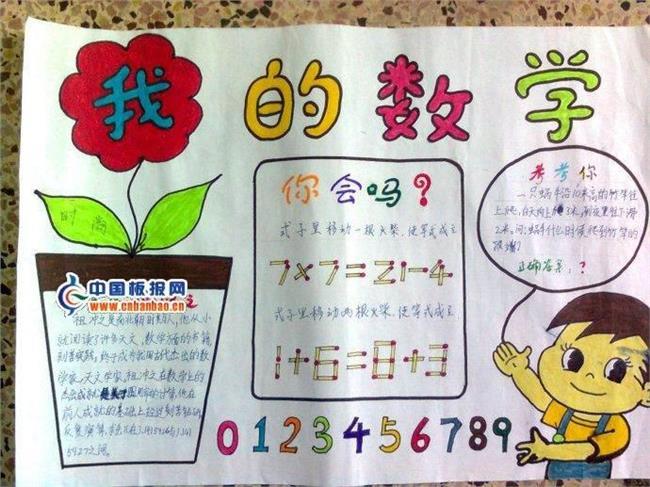 我的数学
时 尚
你会吗?
式子里移动一根火柴,使等式成立
7×7=21-4
式子里移动两根火柴,使等式成立
1+6=8+3
考考你
一只蜗牛沿10米高的竹竿往
上爬,白天向上爬3米,夜里往下滑
2米。问:蜗牛什么时候爬到竹竿的
顶端?
正确答案:?
中国板报网
www.cnbanbao.cn
祖冲之是南北朝时期人,他从小
就阅读了许多天文、数学方面的书籍,
终于成为我国古代杰出的数
学家、天文学家。祖冲之在数学上的
杰出成就是关于圆周率的计算,他在
前人成就的基础上经过刻苦钻研,
反复演算,求出π在3.1415926与3.141
5927之间。
0123456789